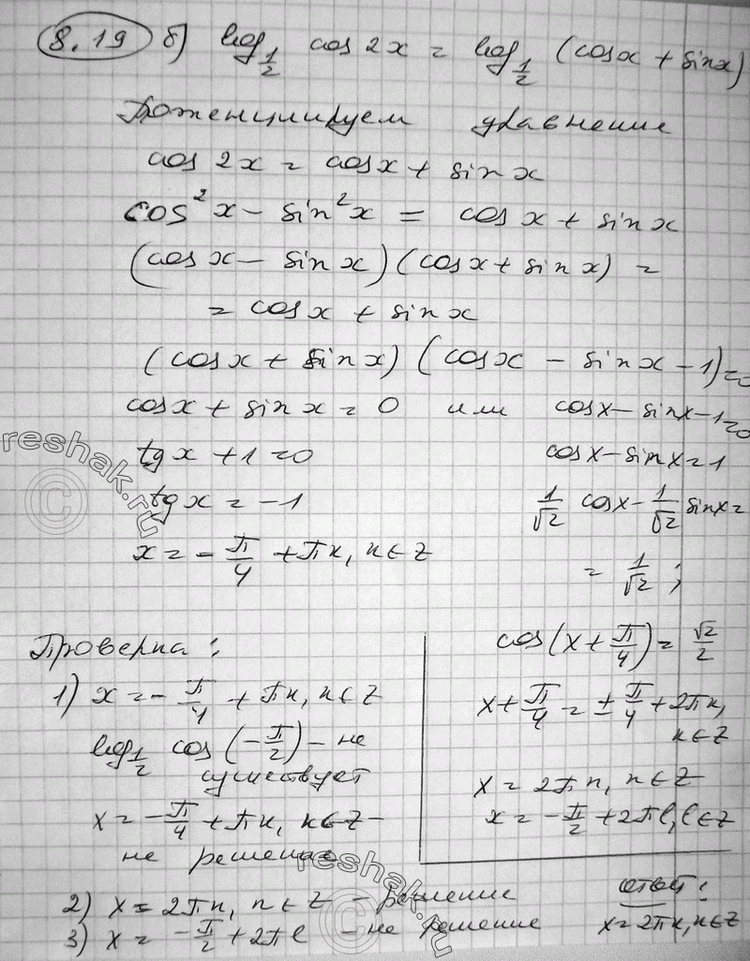 8.19 б) log_{1/2} cos 2x = log_{1/2} (cos x + sin x)
Потенциируем уравнение
cos 2x = cos x + sin x
cos² x − sin² x = cos x + sin x
(cos x − sin x)(cos x + sin x) =
= cos x + sin x
(cos x + sin x)(cos x − sin x − 1) = 0
cos x + sin x = 0 или cos x − sin x − 1 = 0
tg x + 1 = 0
tg x = −1
x = −π/4 + πn, n ∈ Z
cos x − sin x = 1
1/√2 cos x − 1/√2 sin x =
= 1/√2;
cos(x + π/4) = √2/2
x + π/4 = ± π/4 + 2πn,
n ∈ Z
x = 2πn, n ∈ Z
x = −π/2 + 2πl, l ∈ Z
Проверка:
1) x = −π/4 + πn, n ∈ Z
log_{1/2} cos(−π/2) – не
существует
x = −π/4 + πn, n ∈ Z –
не решение
2) x = 2πn, n ∈ Z – решение
3) x = −π/2 + 2πl – не решение
Ответ:
x = 2πn, n ∈ Z
reshak.ru
©
reshak.ru
©